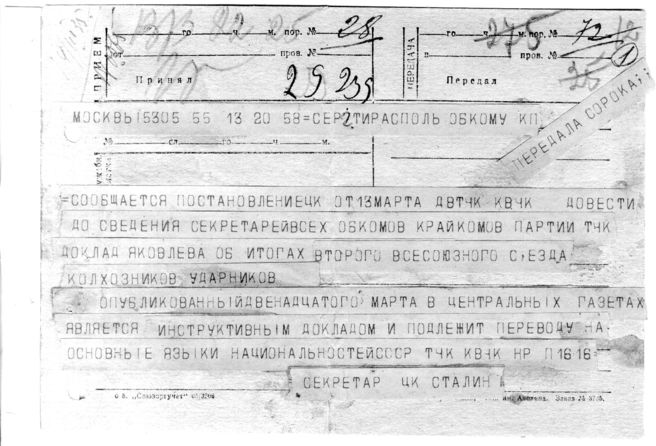 го ч. м. пор. № 28
от пров. №
ПРИЕМ
Принял 25 235
го ч. м. пор. № 72
275
в пров. №
1
ПЕРЕДАЧА
Передал
ПЕРЕДАЛА СОРОКА
МОСКВЫ 15305 55 13 20 58=СЕР ТИРАСПОЛЬ ОБКОМУ КП
№ сл. го ч. м.
=СООБЩАЕТСЯ ПОСТАНОВЛЕНИЕЦК ОТ 13 МАРТА ДВТЧК КВЧК ДОВЕСТИ
ДО СВЕДЕНИЯ СЕКРЕТАРЕЙВСЕХ ОБКОМОВ КРАЙКОМОВ ПАРТИИ ТЧК
ДОКЛАД ЯКОВЛЕВА ОБ ИТОГАХ ВТОРОГО ВСЕСОЮЗНОГО С,ЕЗДА
КОЛХОЗНИКОВ УДАРНИКОВ
ОПУБЛИКОВАННЫЙДВЕНАДЦАТОГО МАРТА В ЦЕНТРАЛЬНЫХ ГАЗЕТАХ
ЯВЛЯЕТСЯ ИНСТРУКТИВНЫМ ДОКЛАДОМ И ПОДЛЕЖИТ ПЕРЕВОДУ НА
ОСНОВНЫЕ ЯЗЫКИ НАЦИОНАЛЬНОСТЕЙСССР ТЧК КВЧК НР П1616=
=СЕКРЕТАР ЦК СТАЛИН
ф б. „Союзоргучет"
Заказ №